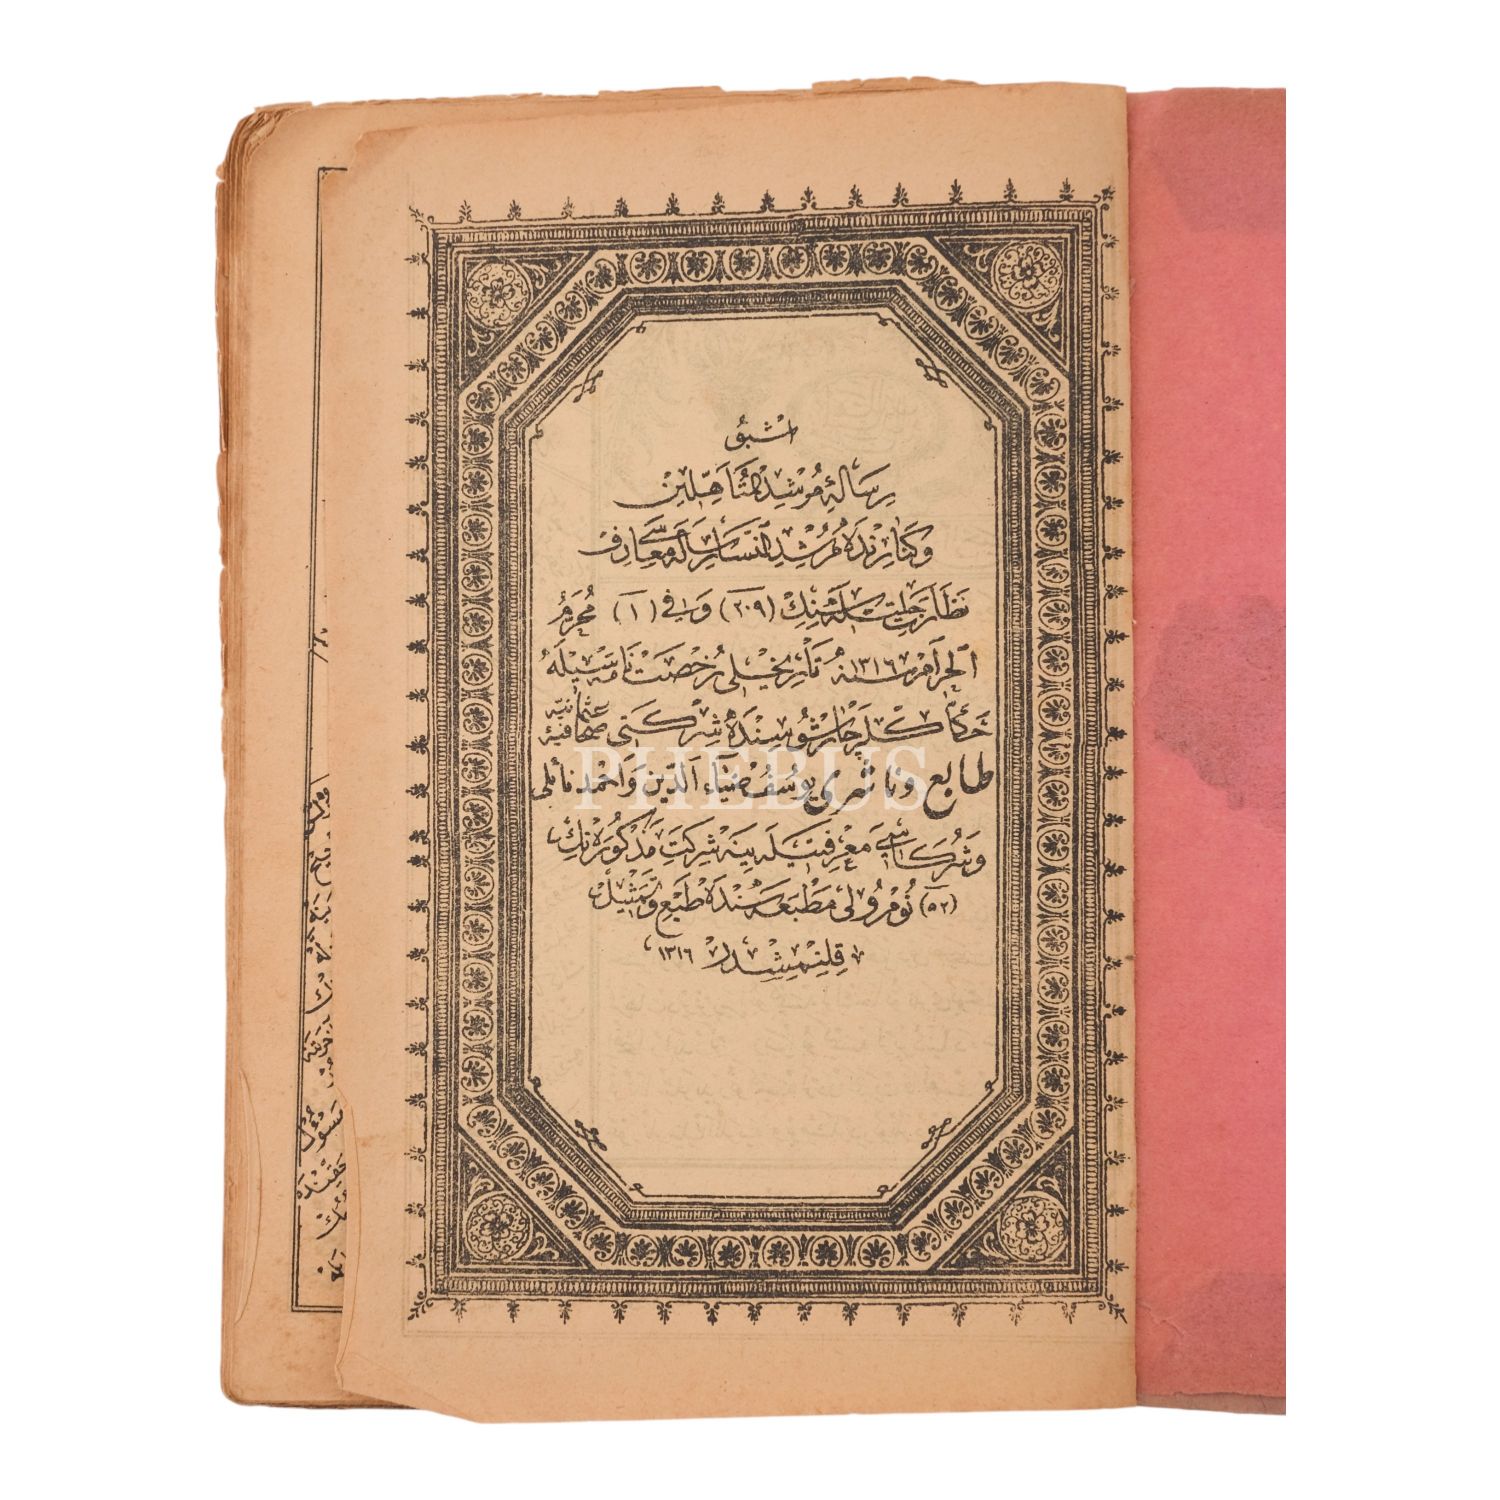 اشبو
رسالۀ مرشد المتأهلين
وكنارنده مرشد النسا رساله سی معارف
نظارت جليله سنك (٢٠٩) و فی (١) محرم
الحرام سنه ١٣١٦ تاريخلی رخصتنامه سيله
حكاكلر چارشوسنده شركتی صحافيۀ عثمانيه
طابع وناشری يوسف ضياء الدين واحمد نائلی
وشركاسی معرفتيله ينه شركت مذكوره نك
(٥٢) نومرولی مطبعه سنده طبع وتمثيل
قلنمشدر ١٣١٦
PHEBUS